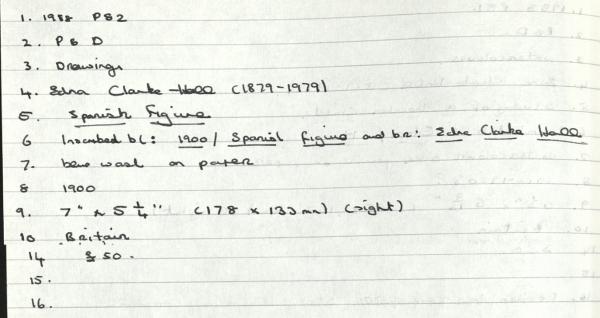 1. 1988 PS2
2. P & D
3. Drawings
4. Edna Clarke Hall (1879-1979)
5. Spanish Figure
6 Inscribed bl: 1900/ Spanish figure and br: Edna Clarke Hall
7. wash on paper
8 1900
9. 7" x 5 1/4" (178 x 133 mm) (sight)
10 Britain
14 £50.
15.
16.